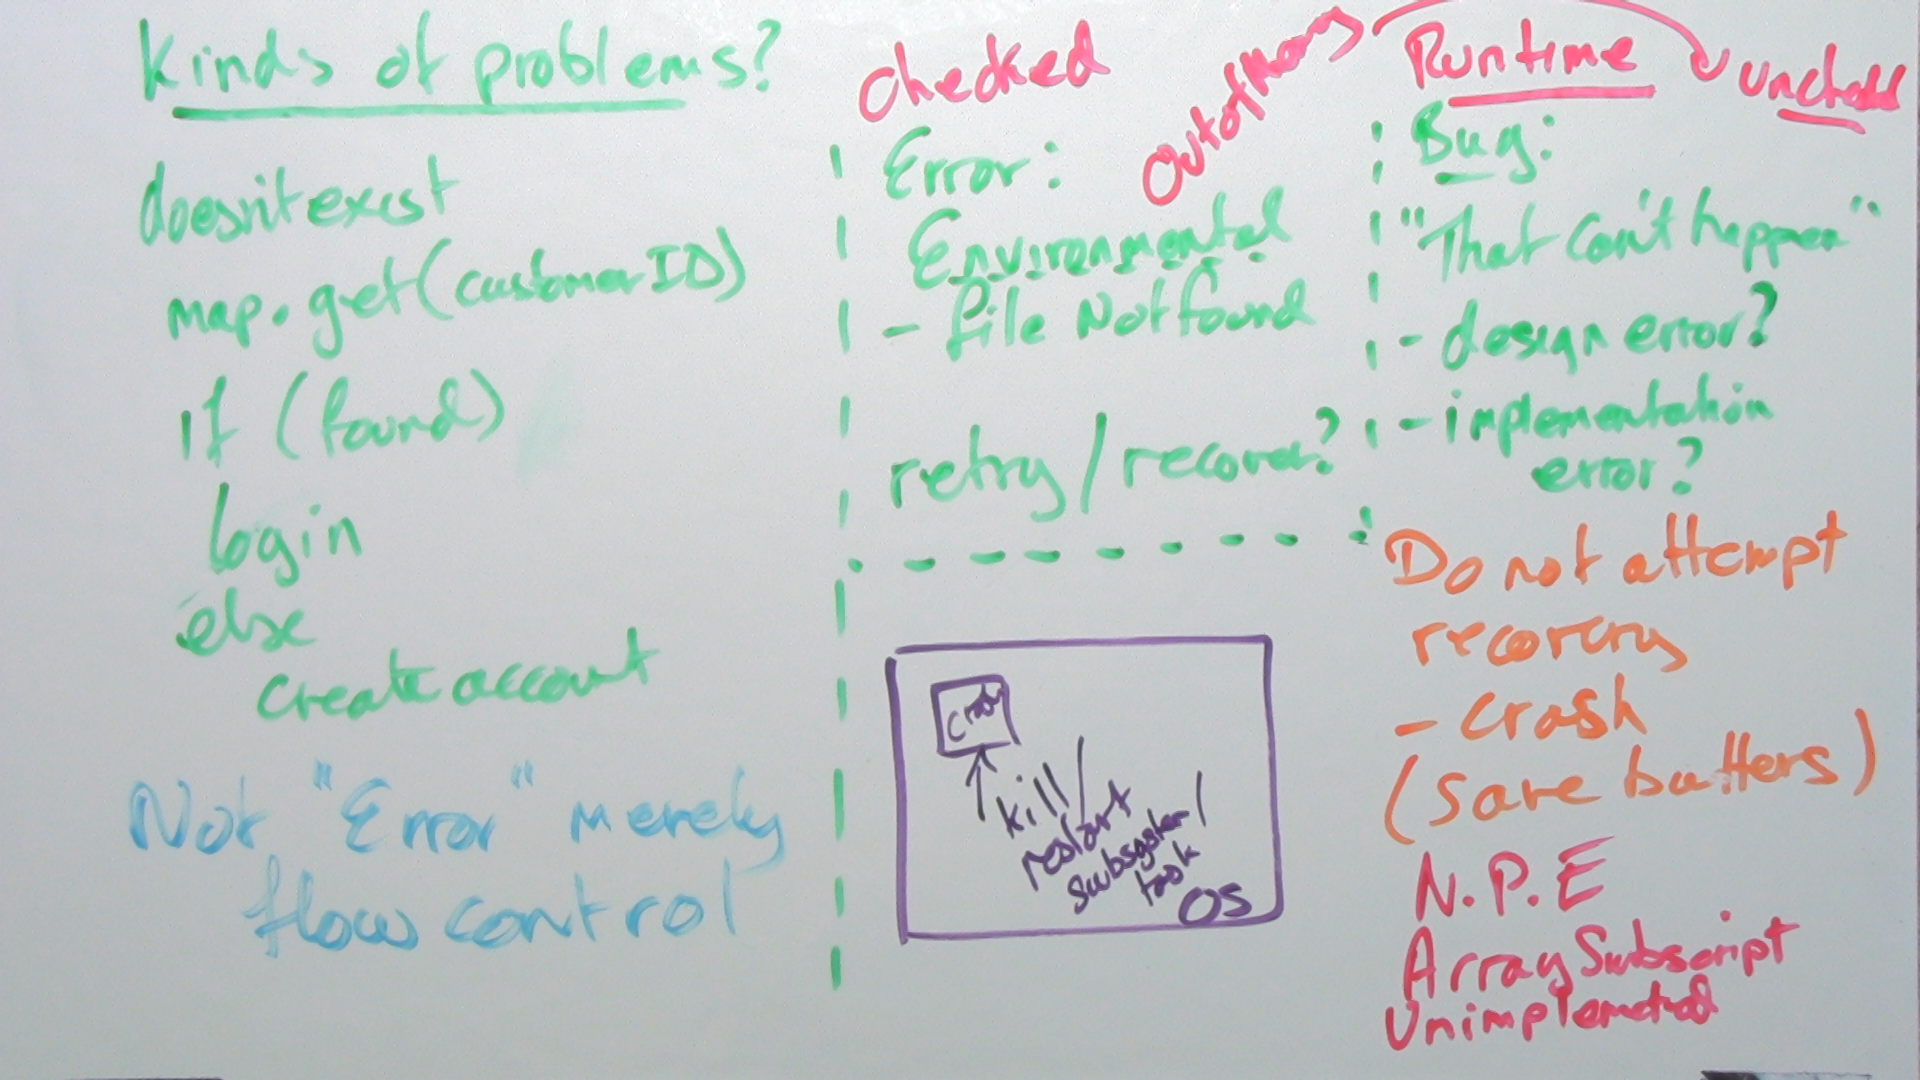 Kinds of problems?
doesn't exist
map.get(customerID)
if (found)
login
else
create account
Not "Error" merely
flow control
Checked
Error:
Environmental
- file Not found
retry/recover?
OutofMemory
crash
kill/
restart
subsystem/
task
OS
Runtime
unchecked
Bug:
"That can't happen"
- design error?
- implementation
error?
Do not attempt
recovery
- crash
(save buffers)
N.P.E
Array Subscript
Unimplemented